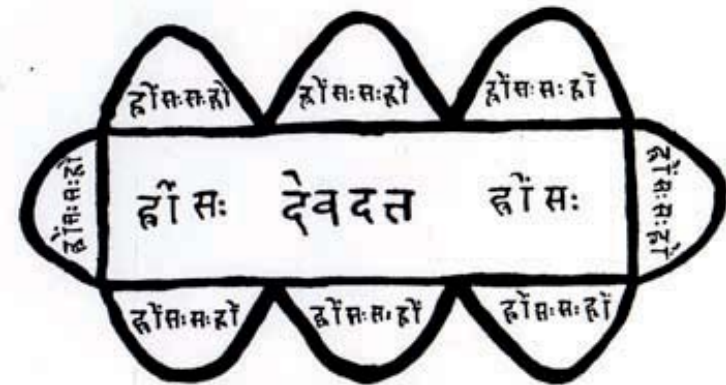 ह्रोंसःसःह्रों
ह्रोंसःसःह्रों
ह्रोंसःसःह्रों
ह्रोंसःसःह्रों
ह्रीं सः देवदत्त ह्रों सः
ह्रोंसःसःह्रों
ह्रोंसःसःह्रों
ह्रोंसःसःह्रों
ह्रोंसःसःह्रों